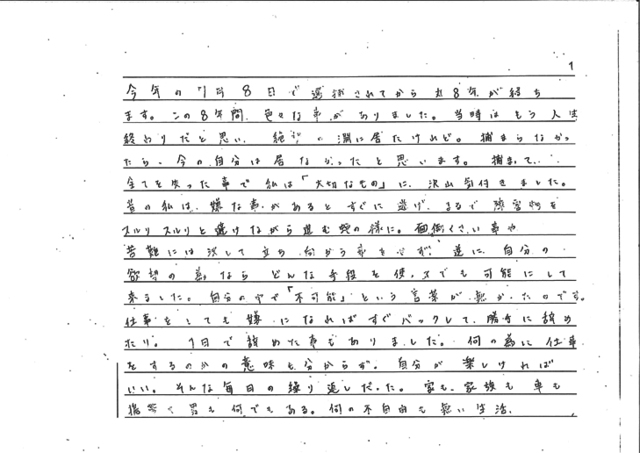 1
今年の7月8日で逮捕されてから丸8年が経ち
ます。この8年間、色々な事がありました。当時はもう人生
終わりだと思い、絶望の淵に居たけれど。捕まらなかっ
たら、今の自分は居なかったと思います。捕まって、
全てを失った事で私は「大切なもの」に、沢山気付きました。
昔の私は、嫌な事があるとすぐに逃げ、まるで障害物を
スルリスルリと避けながら進む蛇の様に。面倒くさい事や
苦難には決して立ち向かう事をせず、逆に、自分の
欲望の為なら どんな手段を使ってでも可能にして
来ました。自分の中で「不可能」という言葉が無かったのです。
仕事をしても嫌になればすぐバックレて、勝手に辞め
たり。1日で辞めた事もありました。何の為に仕事
をするのかの意味も分からず、自分が楽しければ
いい。そんな毎日の繰り返しだった。家も、家族も 車も
携帯も 君も何でもある。何の不自由も無い生活、